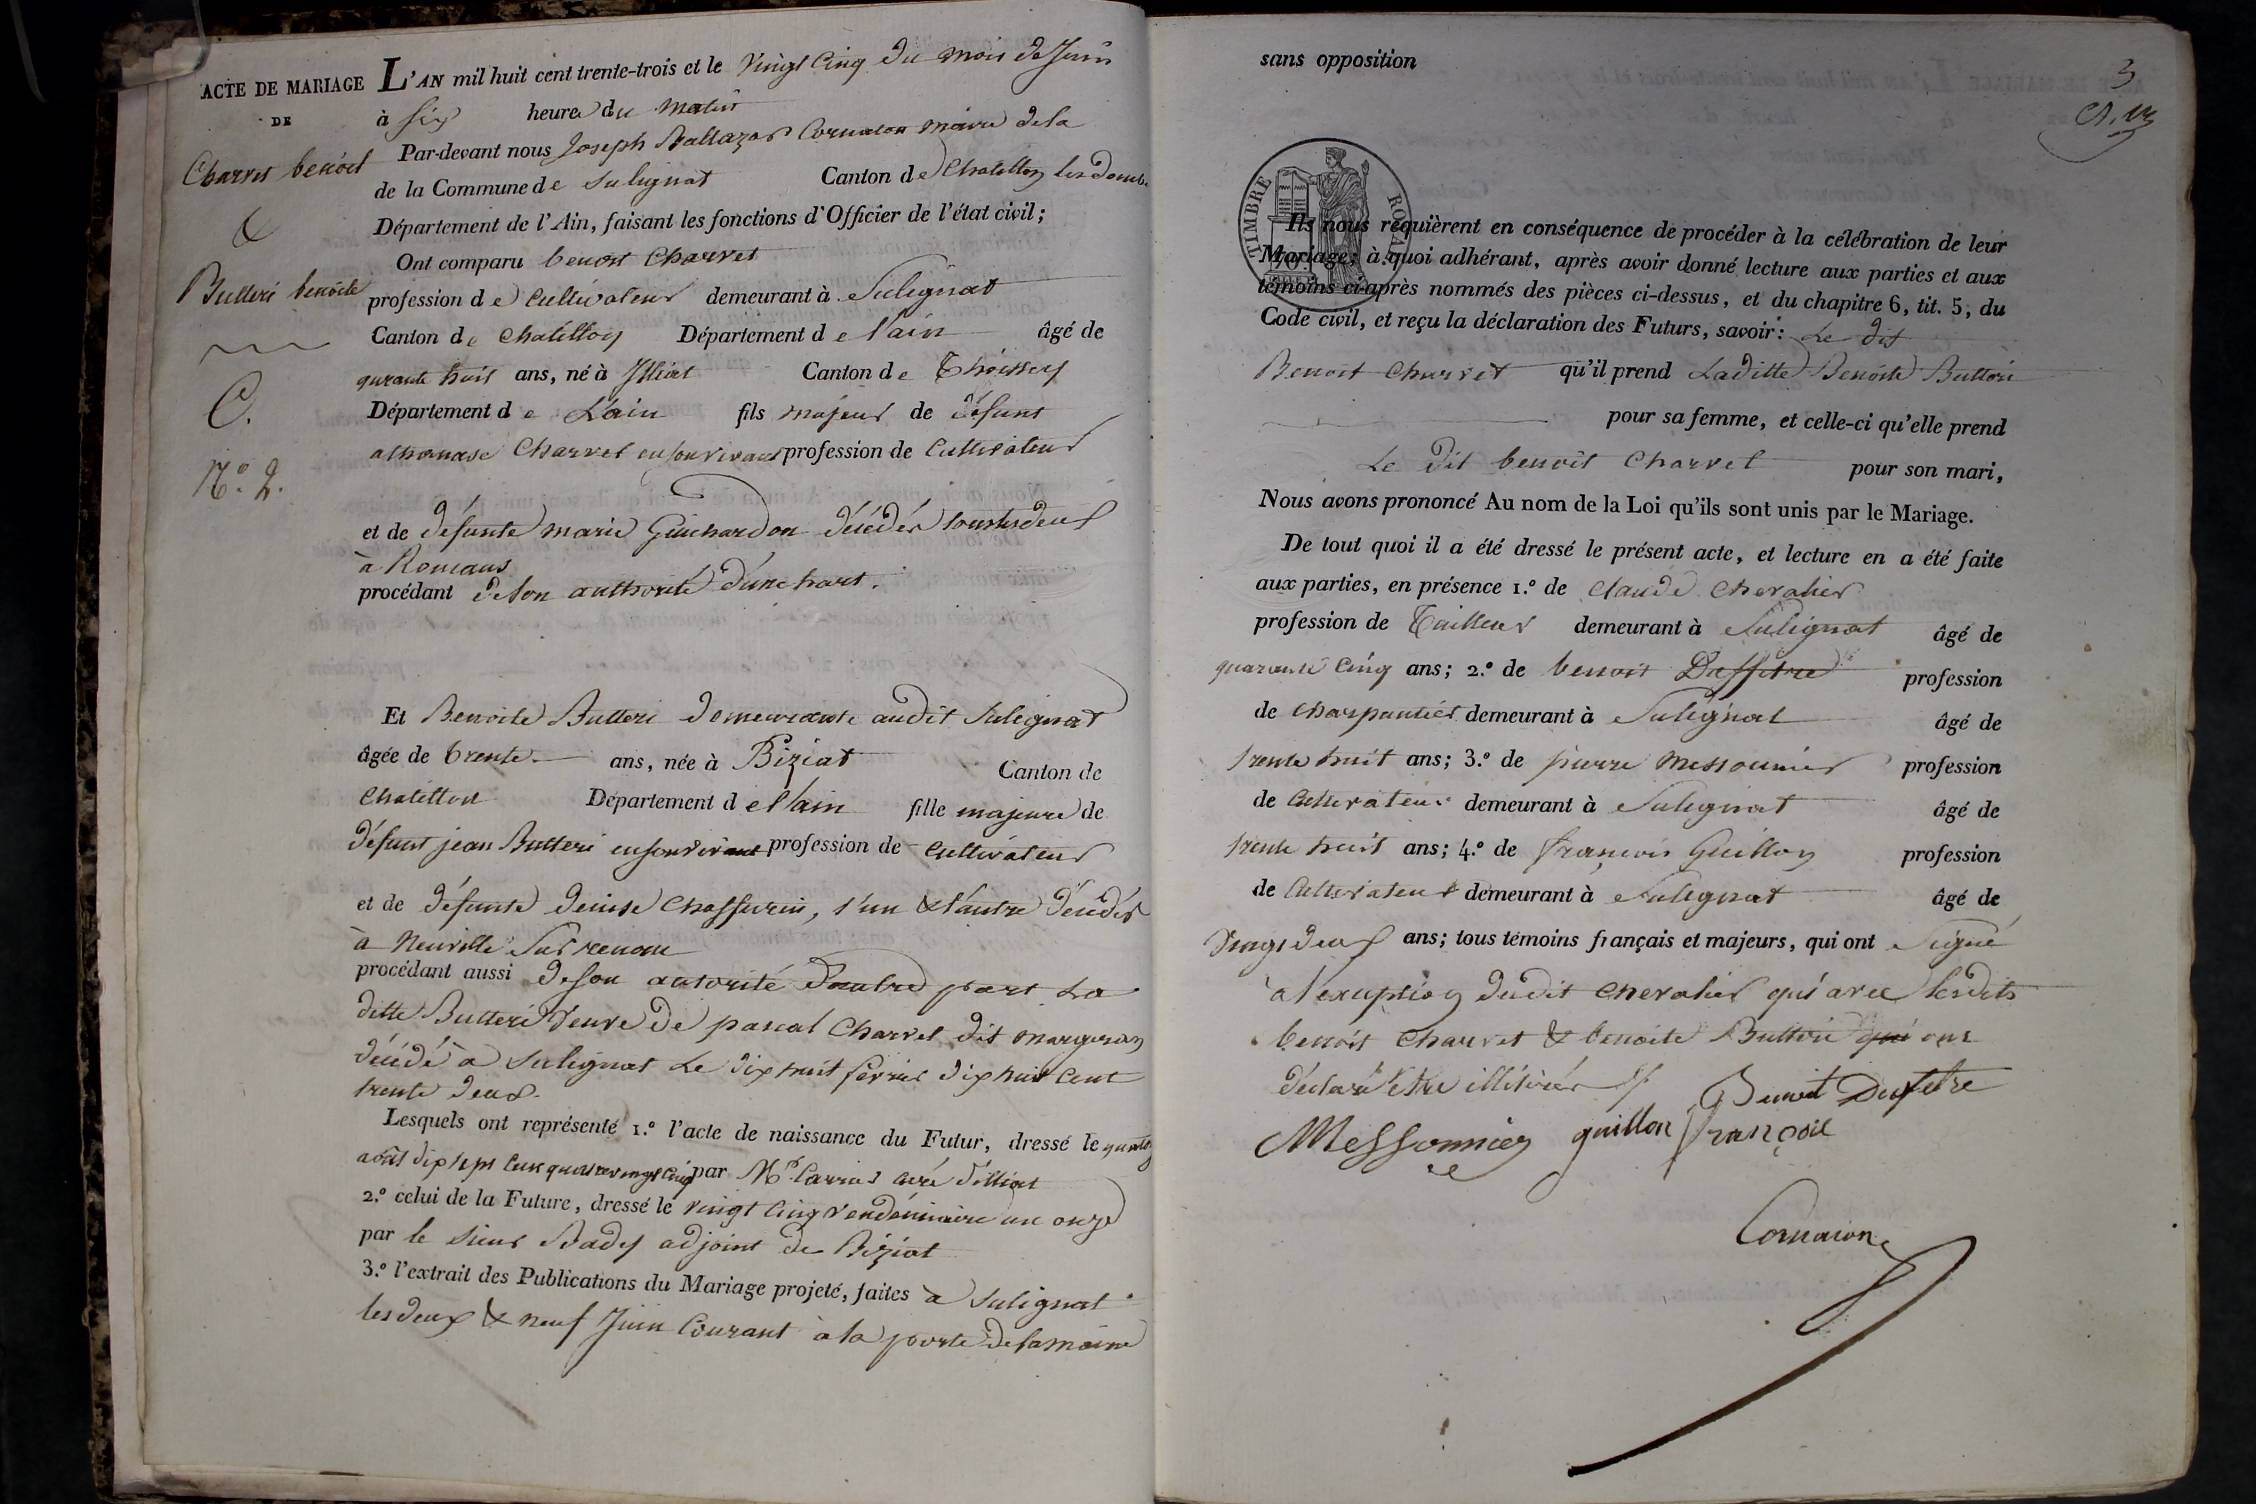 ACTE DE MARIAGE
DE
Charvet benoit
&
Butteri benoite
C.
N.o 2.
L'AN mil huit cent trente-trois et le vingt cinq du mois de Juin
à six heure du matin
Par-devant nous Joseph Baltazar Cornaton maire de la
de la Commune de Sulignat Canton de Chatillon les Domb.
Département de l'Ain, faisant les fonctions d'Officier de l'état civil;
Ont comparu benoit Charvet
profession de Cultivateur demeurant à Sulignat
Canton de Chatillon Département de l'ain âgé de
quarante huit ans, né à Illiat Canton de Thoissey
Département de L'ain fils majeur de défunt
athanase Charvet en son vivant profession de Cultivateur
et de défunte marie Guichardon décédés tous les deux
à Romans
procédant de son authorité d'une part.
Et Benoite Butteri demeurante audit Sulignat
âgée de trente ans, née à Biziat Canton de
Chatillon Département de l'ain fille majeure de
défunt jean Butteri en son vivant profession de Cultivateur
et de défunte denise Chassurin, l'un & l'autre décédés
à Neuville Sur renom
procédant aussi de son autorité d'autre part La
ditte Butteri veuve de pascal Charvet dit
décédé à Sulignat Le dix huit février dix huit cent
trente deux.
Lesquels ont représenté 1.º l'acte de naissance du Futur, dressé le quatre
août dix sept cent quatre vingt cinq par Mr. Carrier curé d'illiat
2.º celui de la Future, dressé le vingt cinq vendémiaire an onze
par le sieur Badey adjoint de Biziat
3.º l'extrait des Publications du Mariage projeté, faites à Sulignat
les deux & neuf Juin Courant à la porte de la mairie
3
sans opposition
TIMBRE ROYAL
Ils nous requièrent en conséquence de procéder à la célébration de leur
Mariage; à quoi adhérant, après avoir donné lecture aux parties et aux
témoins ci-après nommés des pièces ci-dessus, et du chapitre 6, tit. 5, du
Code civil, et reçu la déclaration des Futurs, savoir: Le dit
Benoit Charvet qu'il prend Laditte Benoite Butteri
pour sa femme, et celle-ci qu'elle prend
Le dit benoit Charvet pour son mari,
Nous avons prononcé Au nom de la Loi qu'ils sont unis par le Mariage.
De tout quoi il a été dressé le présent acte, et lecture en a été faite
aux parties, en présence 1.º de Claude Chevalier
profession de Tailleur demeurant à Sulignat âgé de
quarante cinq ans; 2.º de benoit Duffetre profession
de Charpantier demeurant à Sulignat âgé de
trente huit ans; 3.º de pierre Messonnier profession
de Cultivateur demeurant à Sulignat âgé de
trente huit ans; 4.º de françois Guillon profession
de Cultivateur demeurant à Sulignat âgé de
vingt deux ans; tous témoins français et majeurs, qui ont Signé
à l'exception dudit Chevalier qui avec lesdits
benoit Charvet & benoite Butteri qui ont
déclaré être illitérés
Benoit Dufetre
Messonnier guillon françois
Cornaton